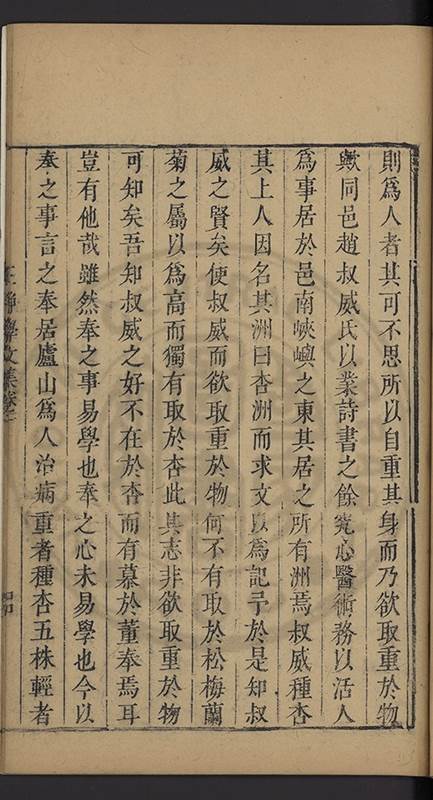 則爲人者其可不思所以自重其身而乃欲取重於物
歟同邑趙叔威氏以業詩書之餘究心醫術務以活人
爲事居於邑南峽嶼之東其居之所有洲焉叔威種杏
其上人因名其洲曰杏洲而求文以爲記予於是知叔
威之賢矣使叔威而欲取重於物何不有取於松梅蘭
菊之屬以爲高而獨有取於杏此其志非欲取重於物
可知矣吾知叔威之好不在於杏而有慕於董奉焉耳
豈有他哉雖然奉之事易學也奉之心未易學也今以
奉之事言之奉居廬山爲人治病重者種杏五株輕者
王靜學文集卷二